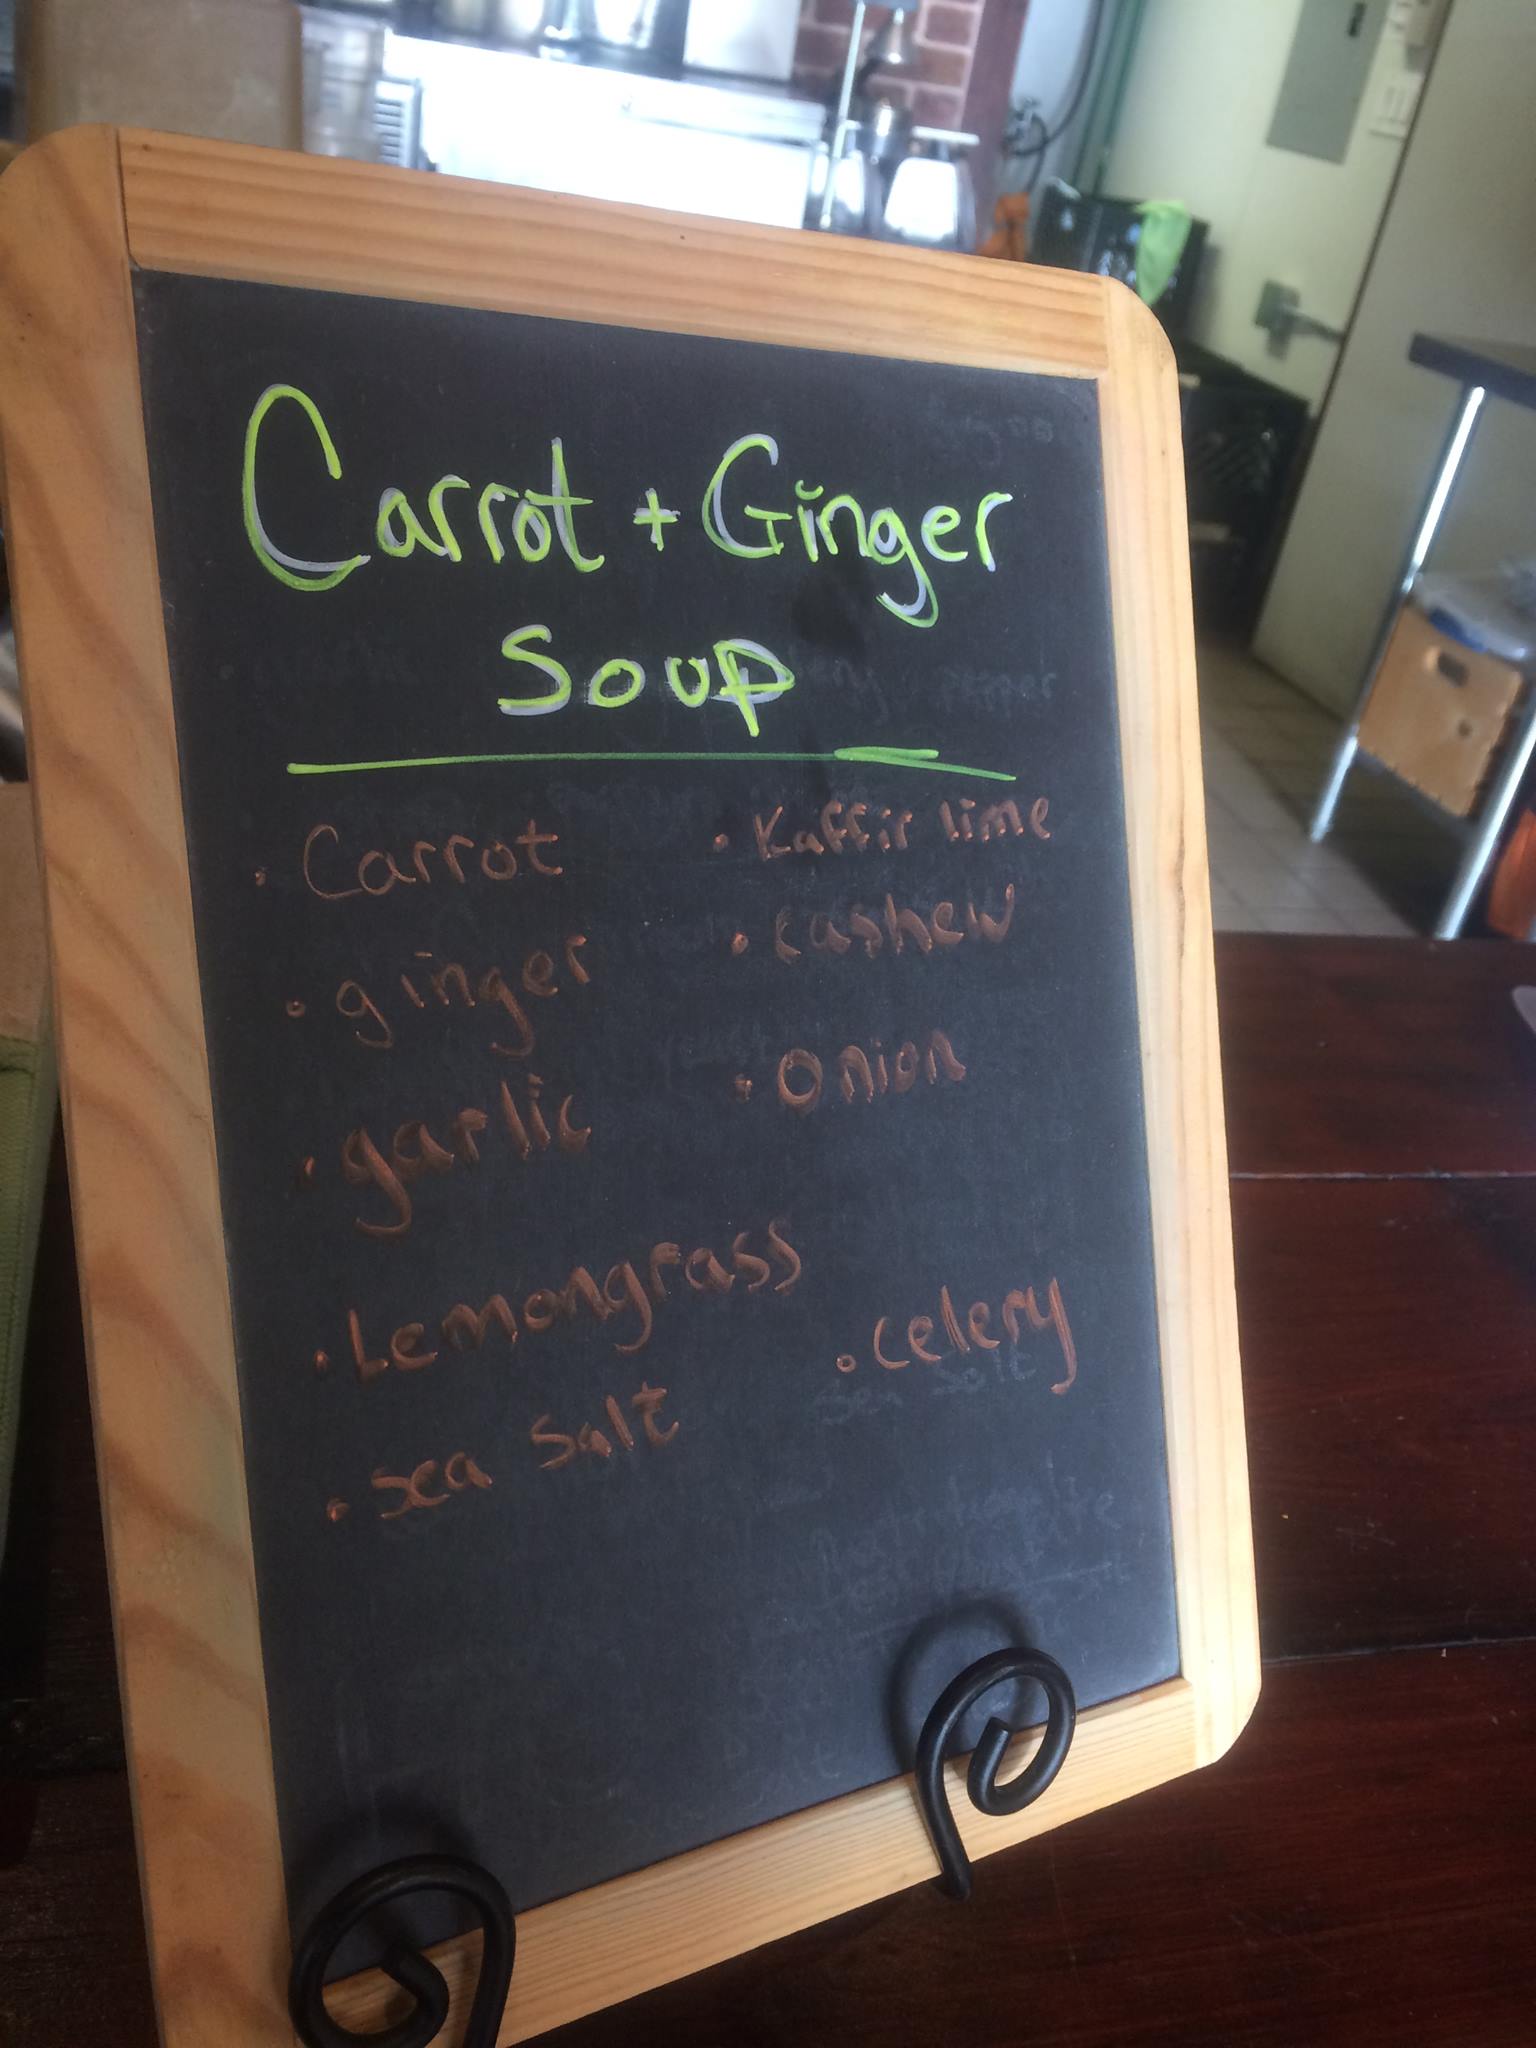 Carrot + Ginger
Soup
• Carrot
• ginger
• garlic
• Lemongrass
• sea salt
• Kaffir lime
• cashew
• Onion
• celery
sea salt